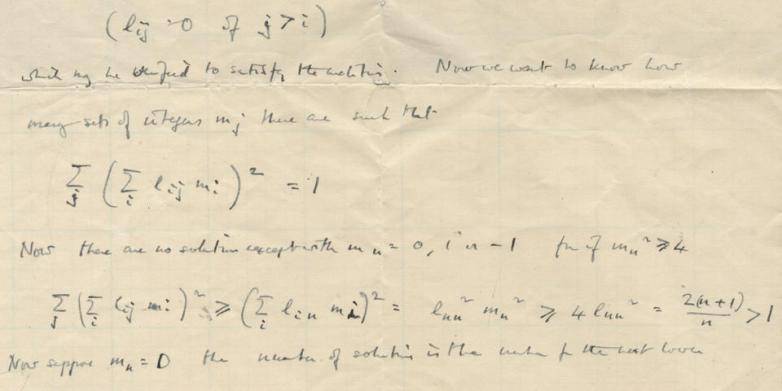 (l_ij = 0 if j > i)
which may be verified to satisfy the relations. Now we want to know how
many sets of integers m_j there are such that
∑_j (∑_i l_ij m_i)² = 1
Now there are no solutions except with m_n = 0, 1 or -1 for if m_n² ⩾ 4
∑_j (∑_i l_ij m_i)² ⩾ (∑_i l_in m_i)² = l_nn² m_n² ⩾ 4 l_nn² = 2(n+1)/n > 1
Now suppose m_n = 0 the number of solutions is the number for the next lower